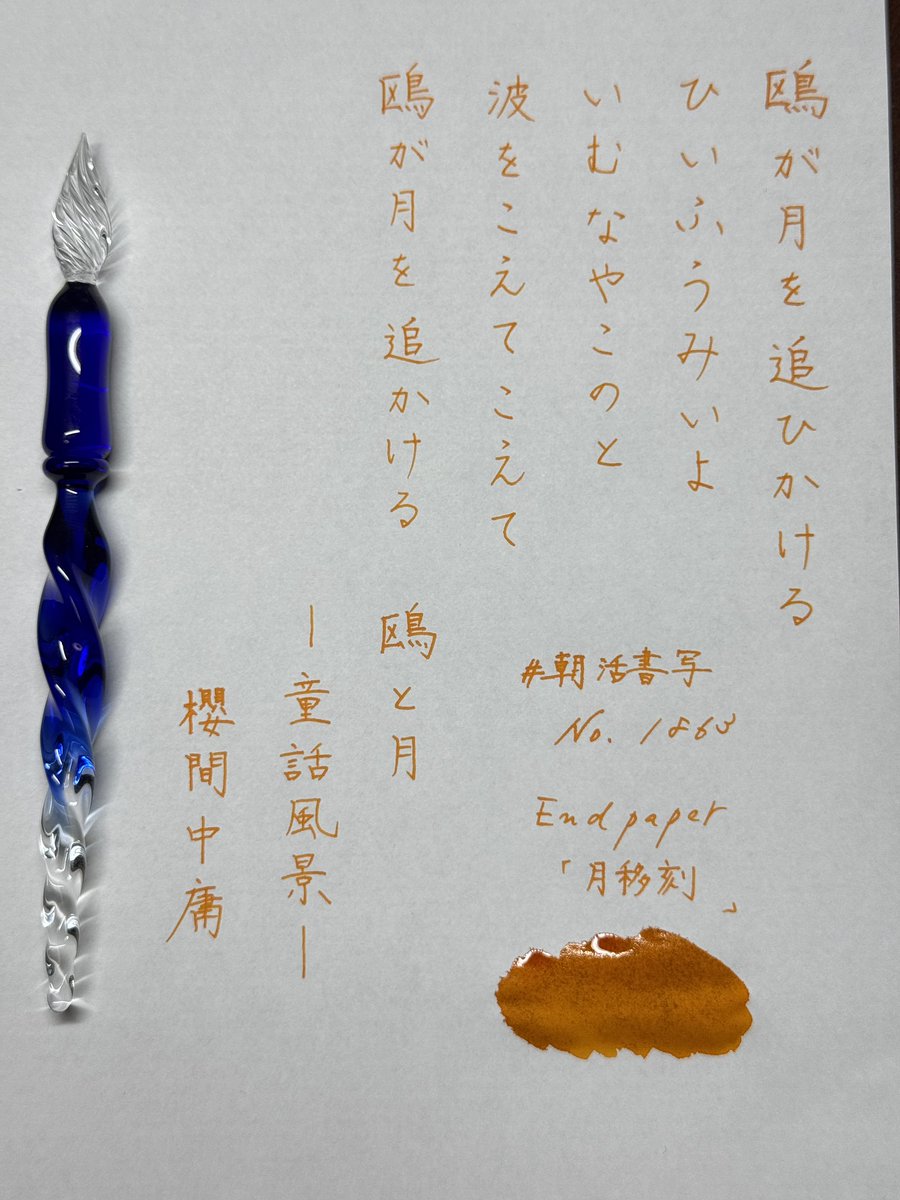 鴎が月を追ひかける
ひいふうみいよ
いむなやこのと
波をこえてこえて
鴎が月を追かける
鴎と月
―童話風景―
櫻間中庸
#朝活書写
No. 1863
End paper
「月移刻」